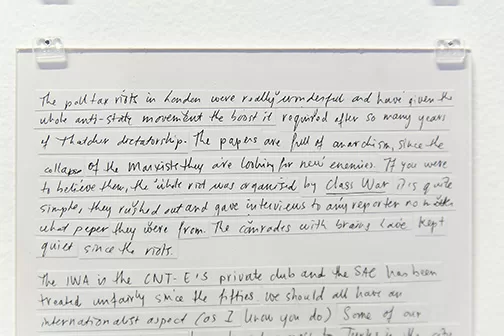 The poll tax riots in London were really wonderful and have given the
whole anti-state movement the boost it required after so many years
of Thatcher dictatorship. The papers are full of anarchism, since the
collapse of the Marxists they are looking for new enemies. If you were
to believe them, the whole riot was organised by Class War it is quite
simple, they rushed out and gave interviews to any reporter no matter
what paper they were from. The comrades with brains have kept
quiet since the riots.
The IWA is the CNT-E's private club and the SAC has been
treated unfairly since the fifties we should all have an
internationalist aspect (as I know you do) Some of our